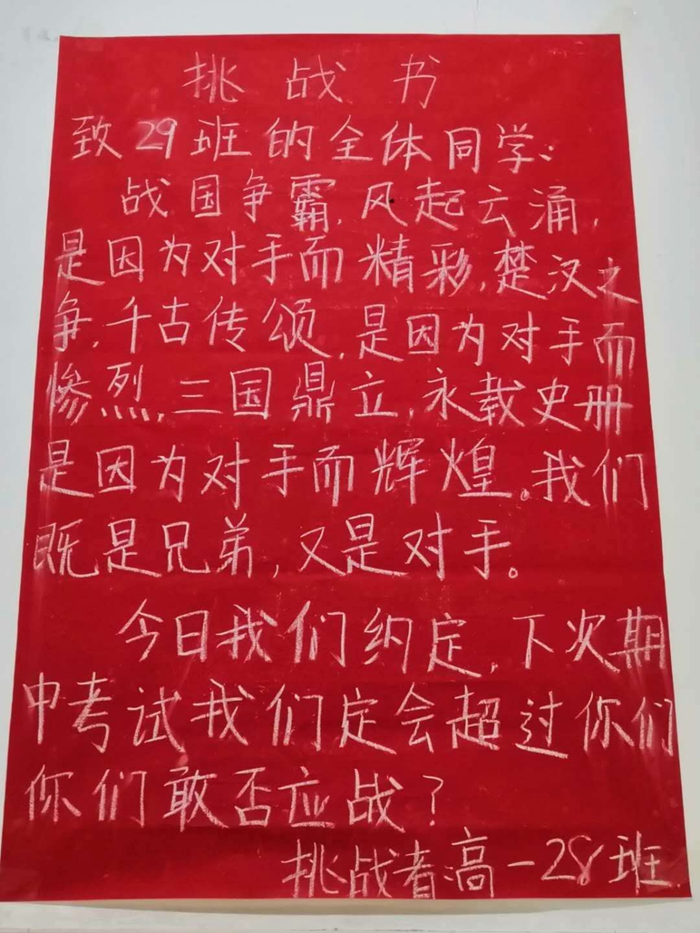 挑战书
致29班的全体同学:
战国争霸,风起云涌,
是因为对手而精彩,楚汉之
争,千古传颂,是因为对手而
惨烈,三国鼎立,永载史册
是因为对手而辉煌。我们
既是兄弟,又是对手。
今日我们约定,下次期
中考试我们定会超过你们
你们敢否应战?
挑战者:高一28班